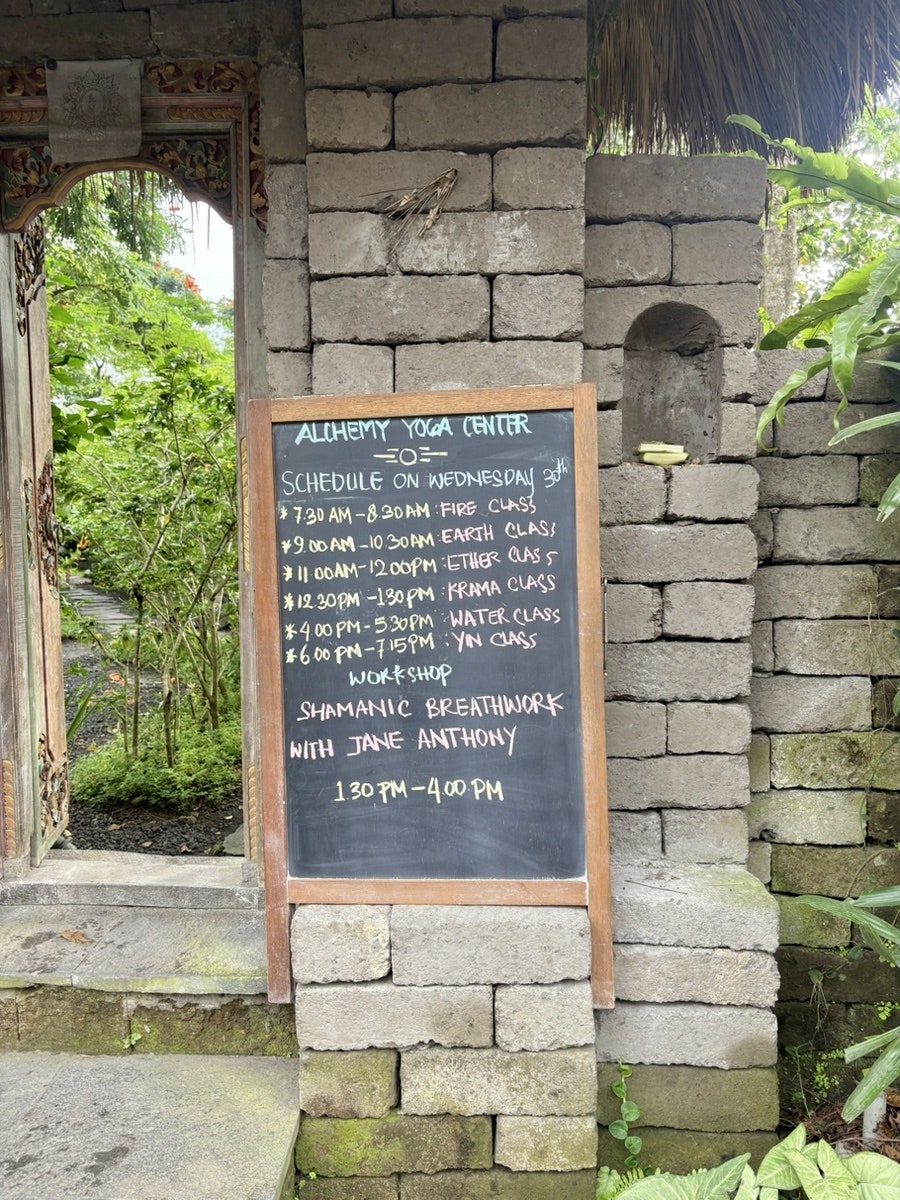 ALCHEMY YOGA CENTER
SCHEDULE ON WEDNESDAY 30th
* 7.30 AM - 8.30 AM : FIRE CLASS
* 9.00 AM - 10.30 AM : EARTH CLASS
* 11.00 AM - 12.00 PM : ETHER CLASS
* 12.30 PM - 1.30 PM : KRAMA CLASS
* 4.00 PM - 5.30 PM : WATER CLASS
* 6.00 PM - 7.15 PM : YIN CLASS
WORKSHOP
SHAMANIC BREATHWORK
WITH JANE ANTHONY
1.30 PM - 4.00 PM